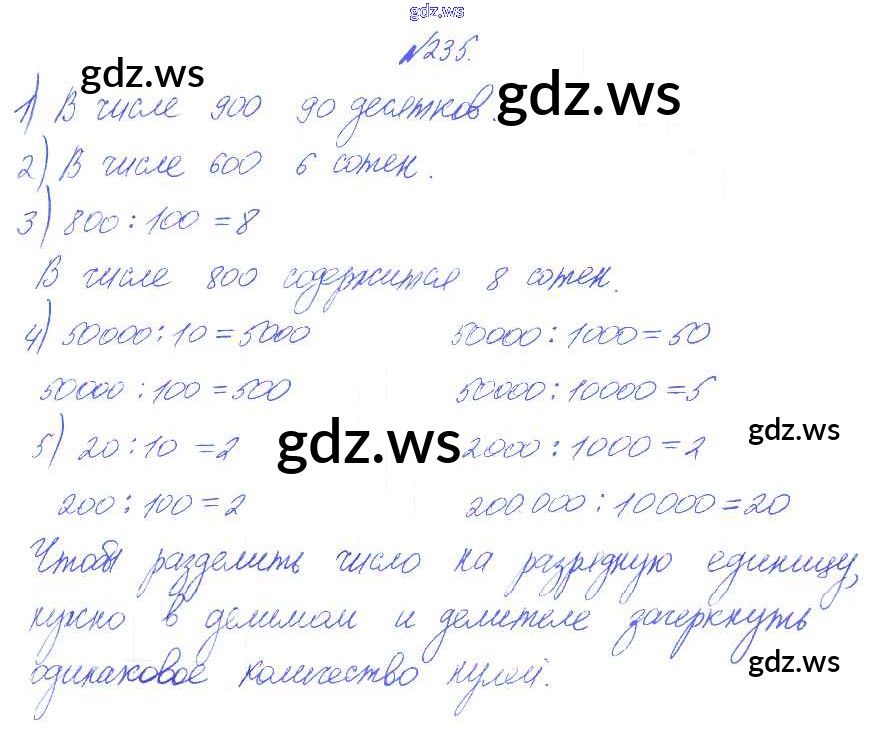 gdz.ws
№235.
gdz.ws
gdz.ws
1) В числе 900 90 десятков.
2) В числе 600 6 сотен.
3) 800 : 100 = 8
В числе 800 содержится 8 сотен.
4) 50000 : 10 = 5000 50000 : 1000 = 50
50000 : 100 = 500 50000 : 10000 = 5
gdz.ws
5) 20 : 10 = 2 2000 : 1000 = 2
gdz.ws
200 : 100 = 2 200.000 : 10000 = 20
Чтобы разделить число на разрядную единицу,
нужно в делимом и делителе зачеркнуть
одинаковое количество нулей.
gdz.ws